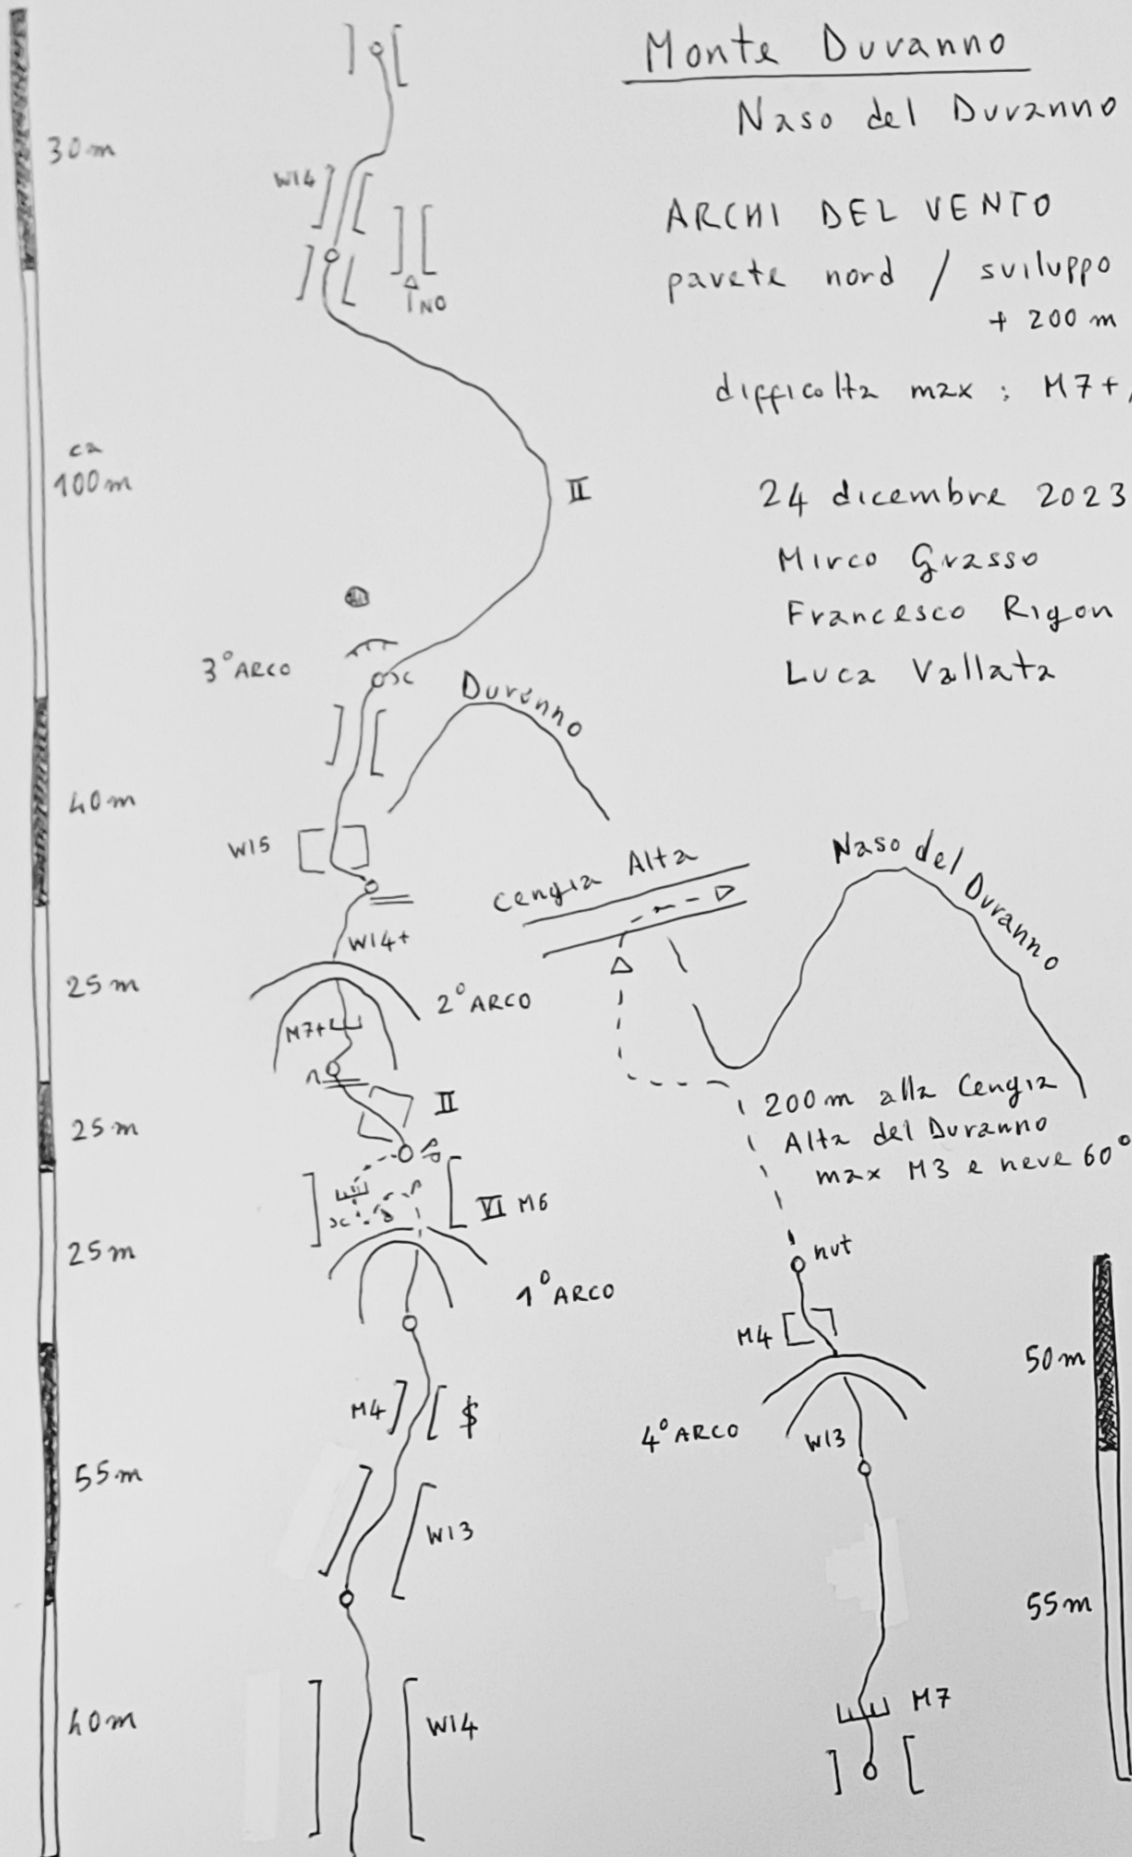 Monte Duranno
Naso del Duranno
ARCHI DEL VENTO
parete nord / sviluppo
+ 200 m
difficolta max : M7+,
24 dicembre 2023
Mirco Grasso
Francesco Rigon
Luca Vallata
30 m
WI4
NO
ca
100 m
II
3° ARCO
Duranno
40 m
WI5
Cengia Alta
Naso del Duranno
WI4+
25 m
2° ARCO
M7+
II
25 m
200 m alla Cengia
Alta del Duranno
max M3 e neve 60°
VI M6
25 m
1° ARCO
nut
M4
50 m
M4
$
4° ARCO
WI3
55 m
WI3
55 m
M7
40 m
WI4